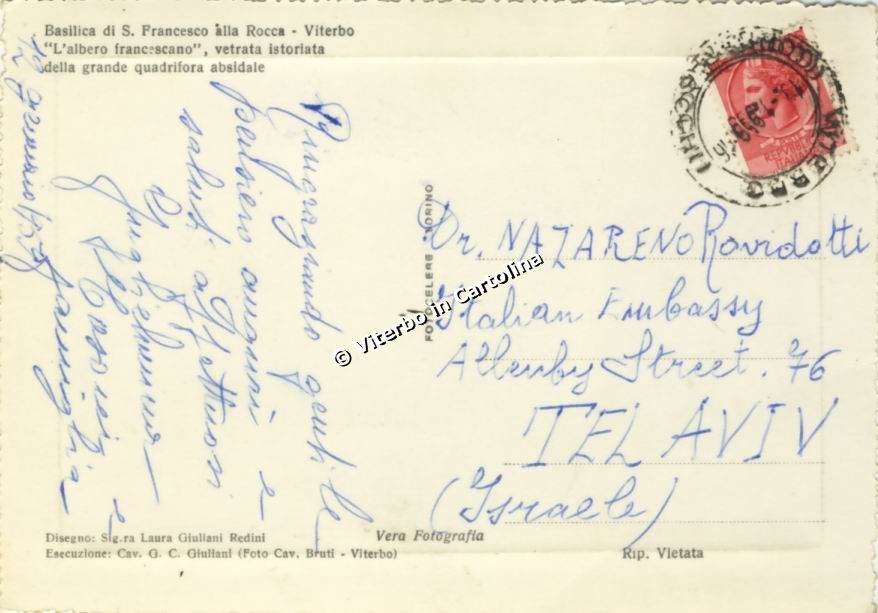 Basilica di S. Francesco alla Rocca - Viterbo
"L'albero francescano", vetrata istoriata
della grande quadrifora absidale
12 gennaio 1958
Ringraziando gentile
pensiero auguri e
saluti affettuosi
di
Guglielmino
e
famiglia
FOTOCELERE TORINO
© Viterbo in Cartolina
VITERBO
REPVBBLICA
ITALIANA
Dr. NAZARENO Rovidotti
Italian Embassy
Allenby Street. 76
TEL AVIV
(Israele)
Disegno: Sig.ra Laura Giuliani Redini
Esecuzione: Cav. G. C. Giuliani (Foto Cav. Bruti - Viterbo)
Vera Fotografia
Rip. Vietata